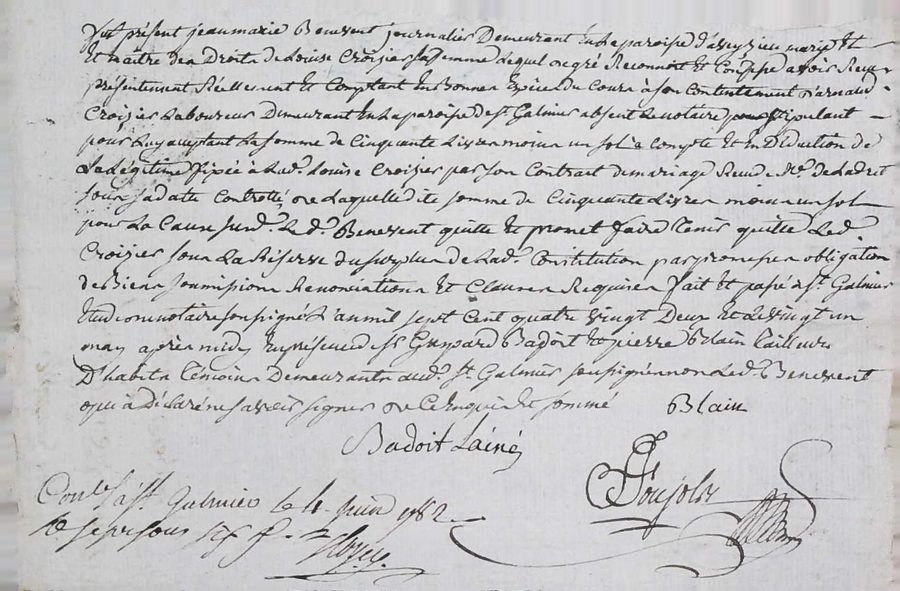 fut présent jean marie Benevent journalier Demeurant en la paroisse d'aveyzieu mary Et
Et maitre des Droits de Louise Croizier sa femme Lequel de gré Reconnoit Et Confesse avoir Receu
présentement Réellement Et Comptant En bonnes Espices du Cours à son Contentement d'arnaud
Croizier Laboureur Demeurant En La paroisse de st Galmier absent Le notaire stipulant
pour Luy acceptant La somme de Cinquante Livres moins un sol à Compte Et En Déduction de
La Légitime fixée à Lad. Louise Croizier par son Contrat de mariage Receu
sous sa date Controllé de Laquelle ditte somme de Cinquante Livres moins un sol
pour La Cause susd. Led. Benevent quitte Et promet faire tenir quitte Led.
Croizier sous La Réserve du surplus de Lad. Constitution par promesses obligation
de Biens soumissions Renonciations Et Clauses Requises fait Et passé à St Galmier
Etude du notaire soussigné L'an mil sept Cent quatre vingt Deux Et Le vingt un
may après midy En présence de sr Gaspard Badoit Et pierre Blain tailleur
D'habits témoins Demeurants aud. St. Galmier soussignés non Led. Benevent
qui à Déclaré ne savoir signer de Ce Enquis Et sommé Blain
Badoit Lainé
Conlé à St Galmier le 4 juin 1782
Soujols